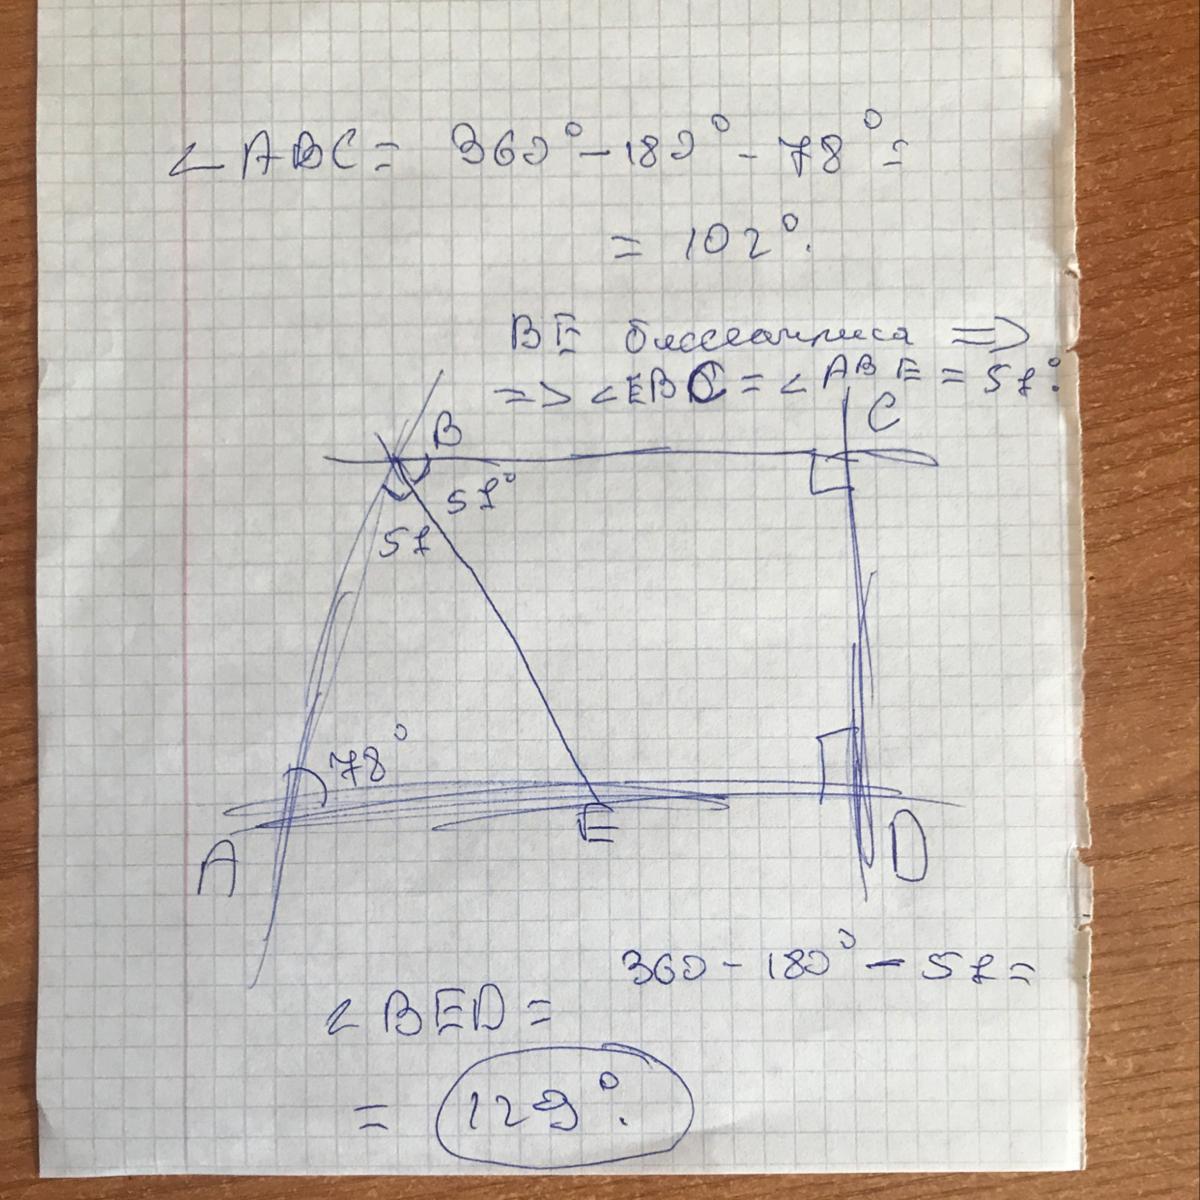 ∠ABC = 360° - 180° - 78° =
= 102°.
BE биссектриса =>
=> ∠EBC = ∠ABE = 51°.
B
C
51°
51
78°
A
E
D
∠BED = 360 - 180° - 51 =
= 129°.